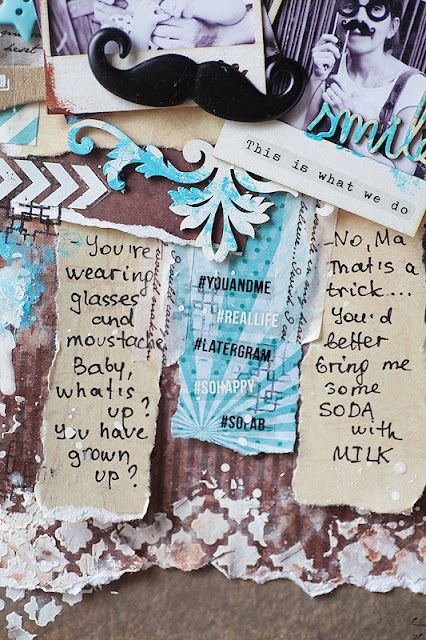 smile
This is what we do
You're
wearing
glasses
and
moustache
Baby,
what's
up?
You have
grown
up?
#YOUANDME
#REALLIFE
#LATERGRAM
#SOHAPPY
#SOFAB
-No, Ma
That's a
trick...
You'd
better
bring me
some
SODA
with
MILK